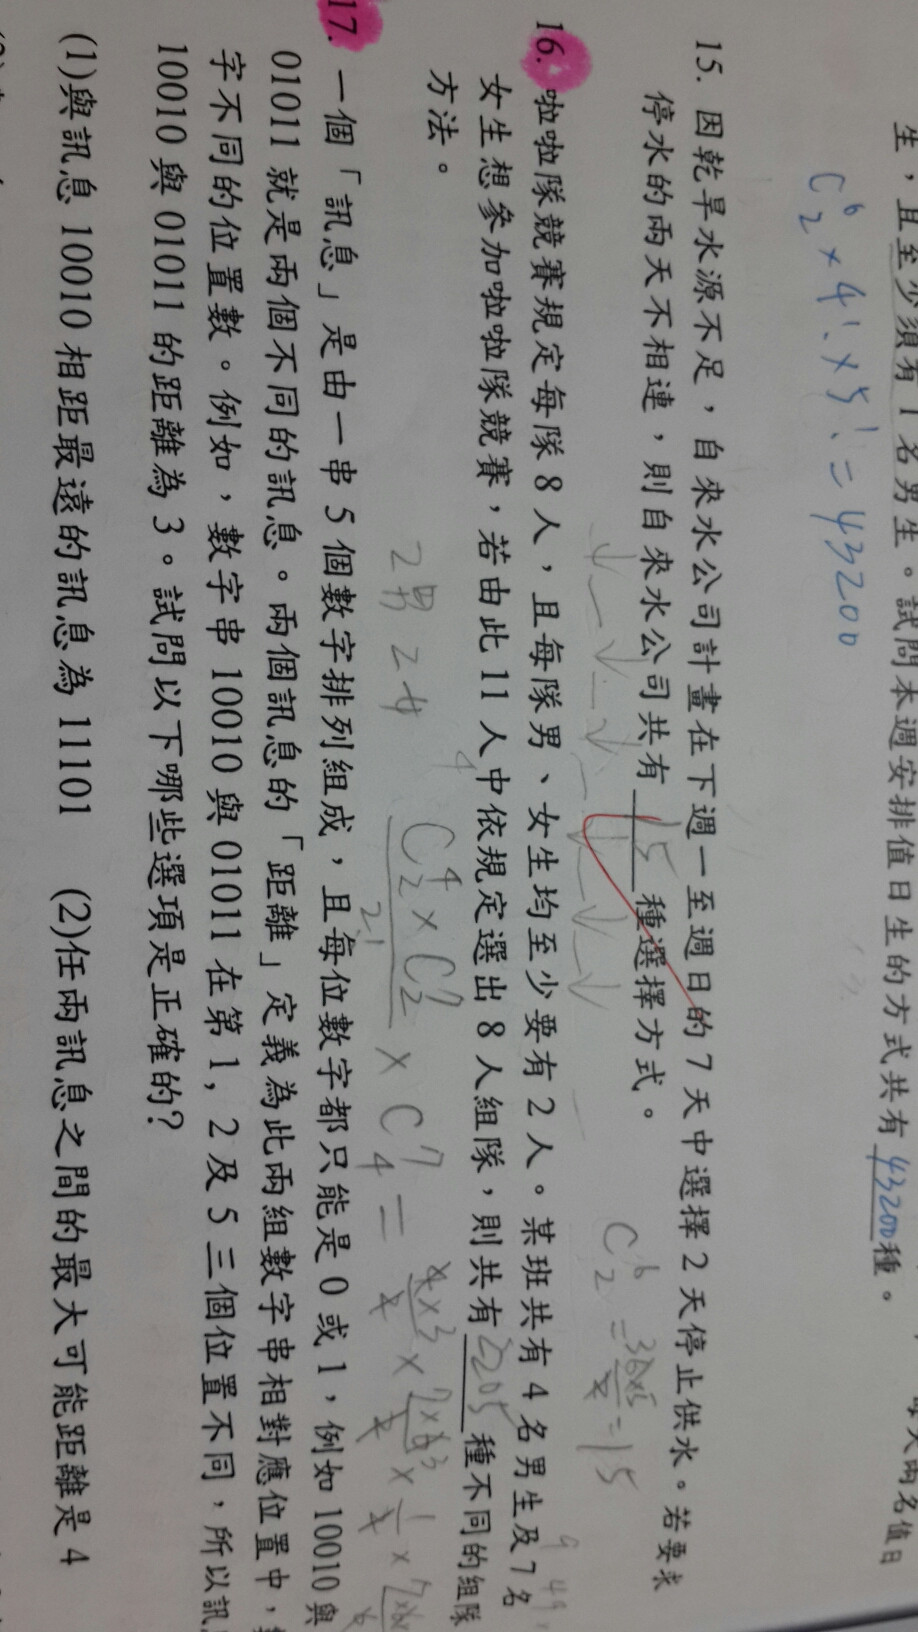 生，且至少須有1名男生。試問本週安排值日生的方式共有43200種。
C⁶₂×4!×5!=43200
15. 因乾旱水源不足，自來水公司計畫在下週一至週日的7天中選擇2天停止供水。若要求
停水的兩天不相連，則自來水公司共有15種選擇方式。
C⁶₂=
=15
16. 啦啦隊競賽規定每隊8人，且每隊男、女生均至少要有2人。某班共有4名男生及7名
女生想參加啦啦隊競賽，若由此11人中依規定選出8人組隊，則共有種不同的組隊
方法。
2男2女
C⁴₂×C⁷₂
2!
×C⁷₄=
17. 一個「訊息」是由一串5個數字排列組成，且每位數字都只能是0或1，例如10010與
01011就是兩個不同的訊息。兩個訊息的「距離」定義為此兩組數字串相對應位置中，
字不同的位置數。例如，數字串10010與01011在第1, 2及5三個位置不同，所以訊
10010與01011的距離為3。試問以下哪些選項是正確的？
(1)與訊息10010相距最遠的訊息為11101 (2)任兩訊息之間的最大可能距離是4